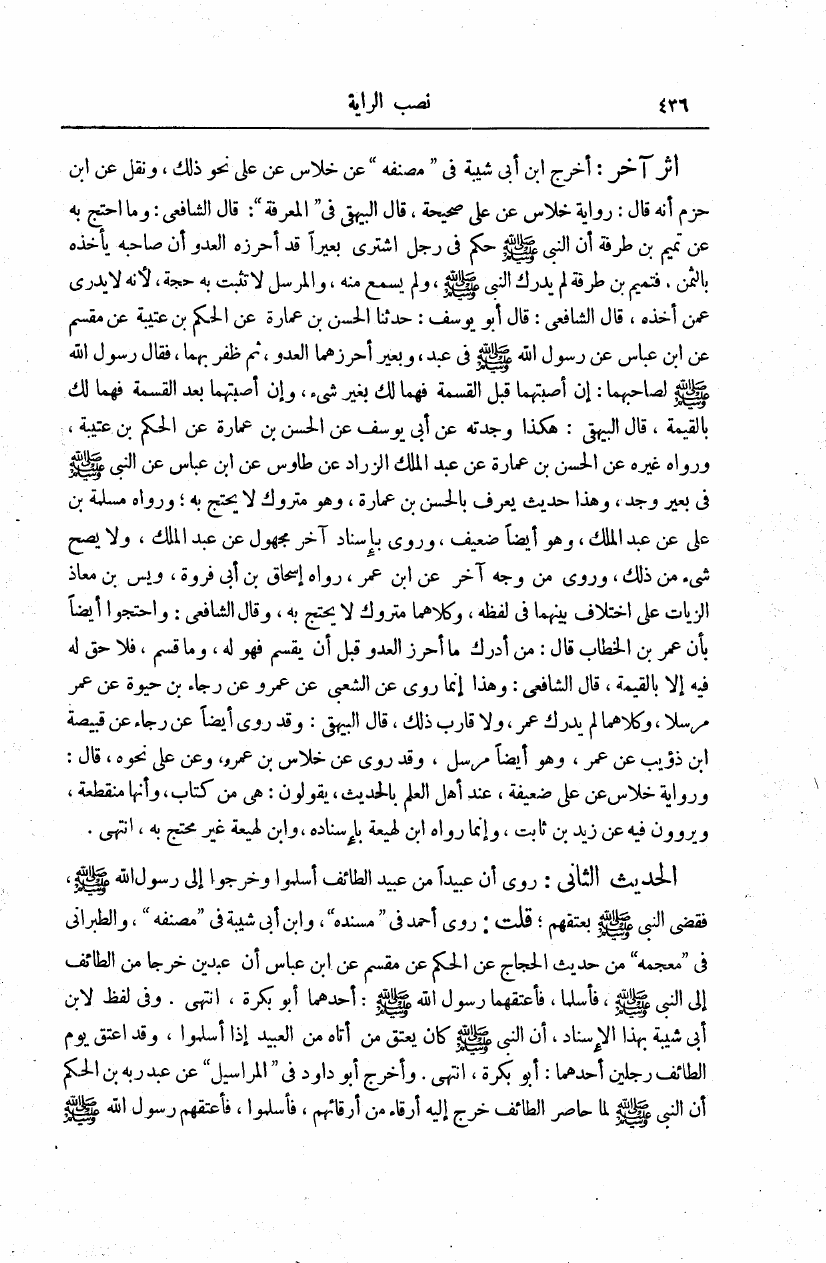 ٤٣٦ نصب الراية
أثر آخر : أخرج ابن أبى شيبة فى " مصنفه " عن خلاس عن على نحو ذلك ، ونقل عن ابن
حزم أنه قال : رواية خلاس عن على صحيحة ، قال البيهقى فى " المعرفة " : قال الشافعى : وما احتج به
عن تميم بن طرفة أن النبى ﷺ حكم فى رجل اشترى بعيراً قد أحرزه العدو أن صاحبه يأخذه
بالثمن ، فتميم بن طرفة لم يدرك النبى ﷺ ، ولم يسمع منه ، والمرسل لا تثبت به حجة ، لأنه لا يدرى
عمن أخذه ، قال الشافعى : قال أبو يوسف : حدثنا الحسن بن عمارة عن الحكم بن عتيبة عن مقسم
عن ابن عباس عن رسول الله ﷺ فى عبد ، وبعير أحرزهما العدو ، ثم ظفر بهما ، فقال رسول الله
ﷺ لصاحبهما : إن أصبتهما قبل القسمة فهما لك بغير شىء ، وإن أصبتهما بعد القسمة فهما لك
بالقيمة ، قال البيهقى : هكذا وجدته عن أبى يوسف عن الحسن بن عمارة عن الحكم بن عتيبة ،
ورواه غيره عن الحسن بن عمارة عن عبد الملك الزراد عن طاوس عن ابن عباس عن النبى ﷺ
فى بعير وجد ، وهذا حديث يعرف بالحسن بن عمارة ، وهو متروك لا يحتج به ؛ ورواه مسلمة بن
على عن عبد الملك ، وهو أيضاً ضعيف ، وروى بإسناد آخر مجهول عن عبد الملك ، ولا يصح
شىء من ذلك ، وروى من وجه آخر عن ابن عمر ، رواه إسحاق بن أبى فروة ، ويس بن معاذ
الزيات على اختلاف بينهما فى لفظه ، وكلاهما متروك لا يحتج به ، وقال الشافعى : واحتجوا أيضاً
بأن عمر بن الخطاب قال : من أدرك ما أحرز العدو قبل أن يقسم فهو له ، وما قسم ، فلا حق له
فيه إلا بالقيمة ، قال الشافعى : وهذا إنما روى عن الشعبى عن عمرو عن رجاء بن حيوة عن عمر
مرسلا ، وكلاهما لم يدرك عمر ، ولا قارب ذلك ، قال البيهقى : وقد روى أيضاً عن رجاء عن قبيصة
ابن ذؤيب عن عمر ، وهو أيضاً مرسل ، وقد روى عن خلاس بن عمرو، وعن على نحوه ، قال :
ورواية خلاس عن على ضعيفة ، عند أهل العلم بالحديث ، يقولون : هى من كتاب ، وأنها منقطعة ،
ويروون فيه عن زيد بن ثابت ، وإنما رواه ابن لهيعة بإسناده ، وابن لهيعة غير محتج به ، انتهى .
الحديث الثانى : روى أن عبيداً من عبيد الطائف أسلموا وخرجوا إلى رسول الله ﷺ ،
فقضى النبى ﷺ بعتقهم ؛ قلت : روى أحمد فى " مسنده " ، وابن أبى شيبة فى " مصنفه " ، والطبرانى
فى " معجمه " من حديث الحجاج عن الحكم عن مقسم عن ابن عباس أن عبدين خرجا من الطائف
إلى النبى ﷺ ، فأسلما ، فأعتقهما رسول الله ﷺ : أحدهما أبو بكرة ، انتهى . وفى لفظ لابن
أبى شيبة بهذا الإسناد ، أن النبى ﷺ كان يعتق من أتاه من العبيد إذا أسلموا ، وقد اعتق يوم
الطائف رجلين أحدهما : أبو بكرة ، انتهى . وأخرج أبو داود فى " المراسيل " عن عبد ربه بن الحكم
أن النبى ﷺ لما حاصر الطائف خرج إليه أرقاء من أرقائهم ، فأسلموا ، فأعتقهم رسول الله ﷺ